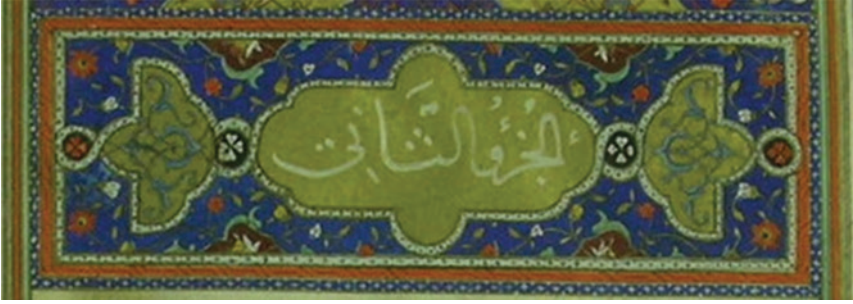 الجُزْؤُ الثَّانِي